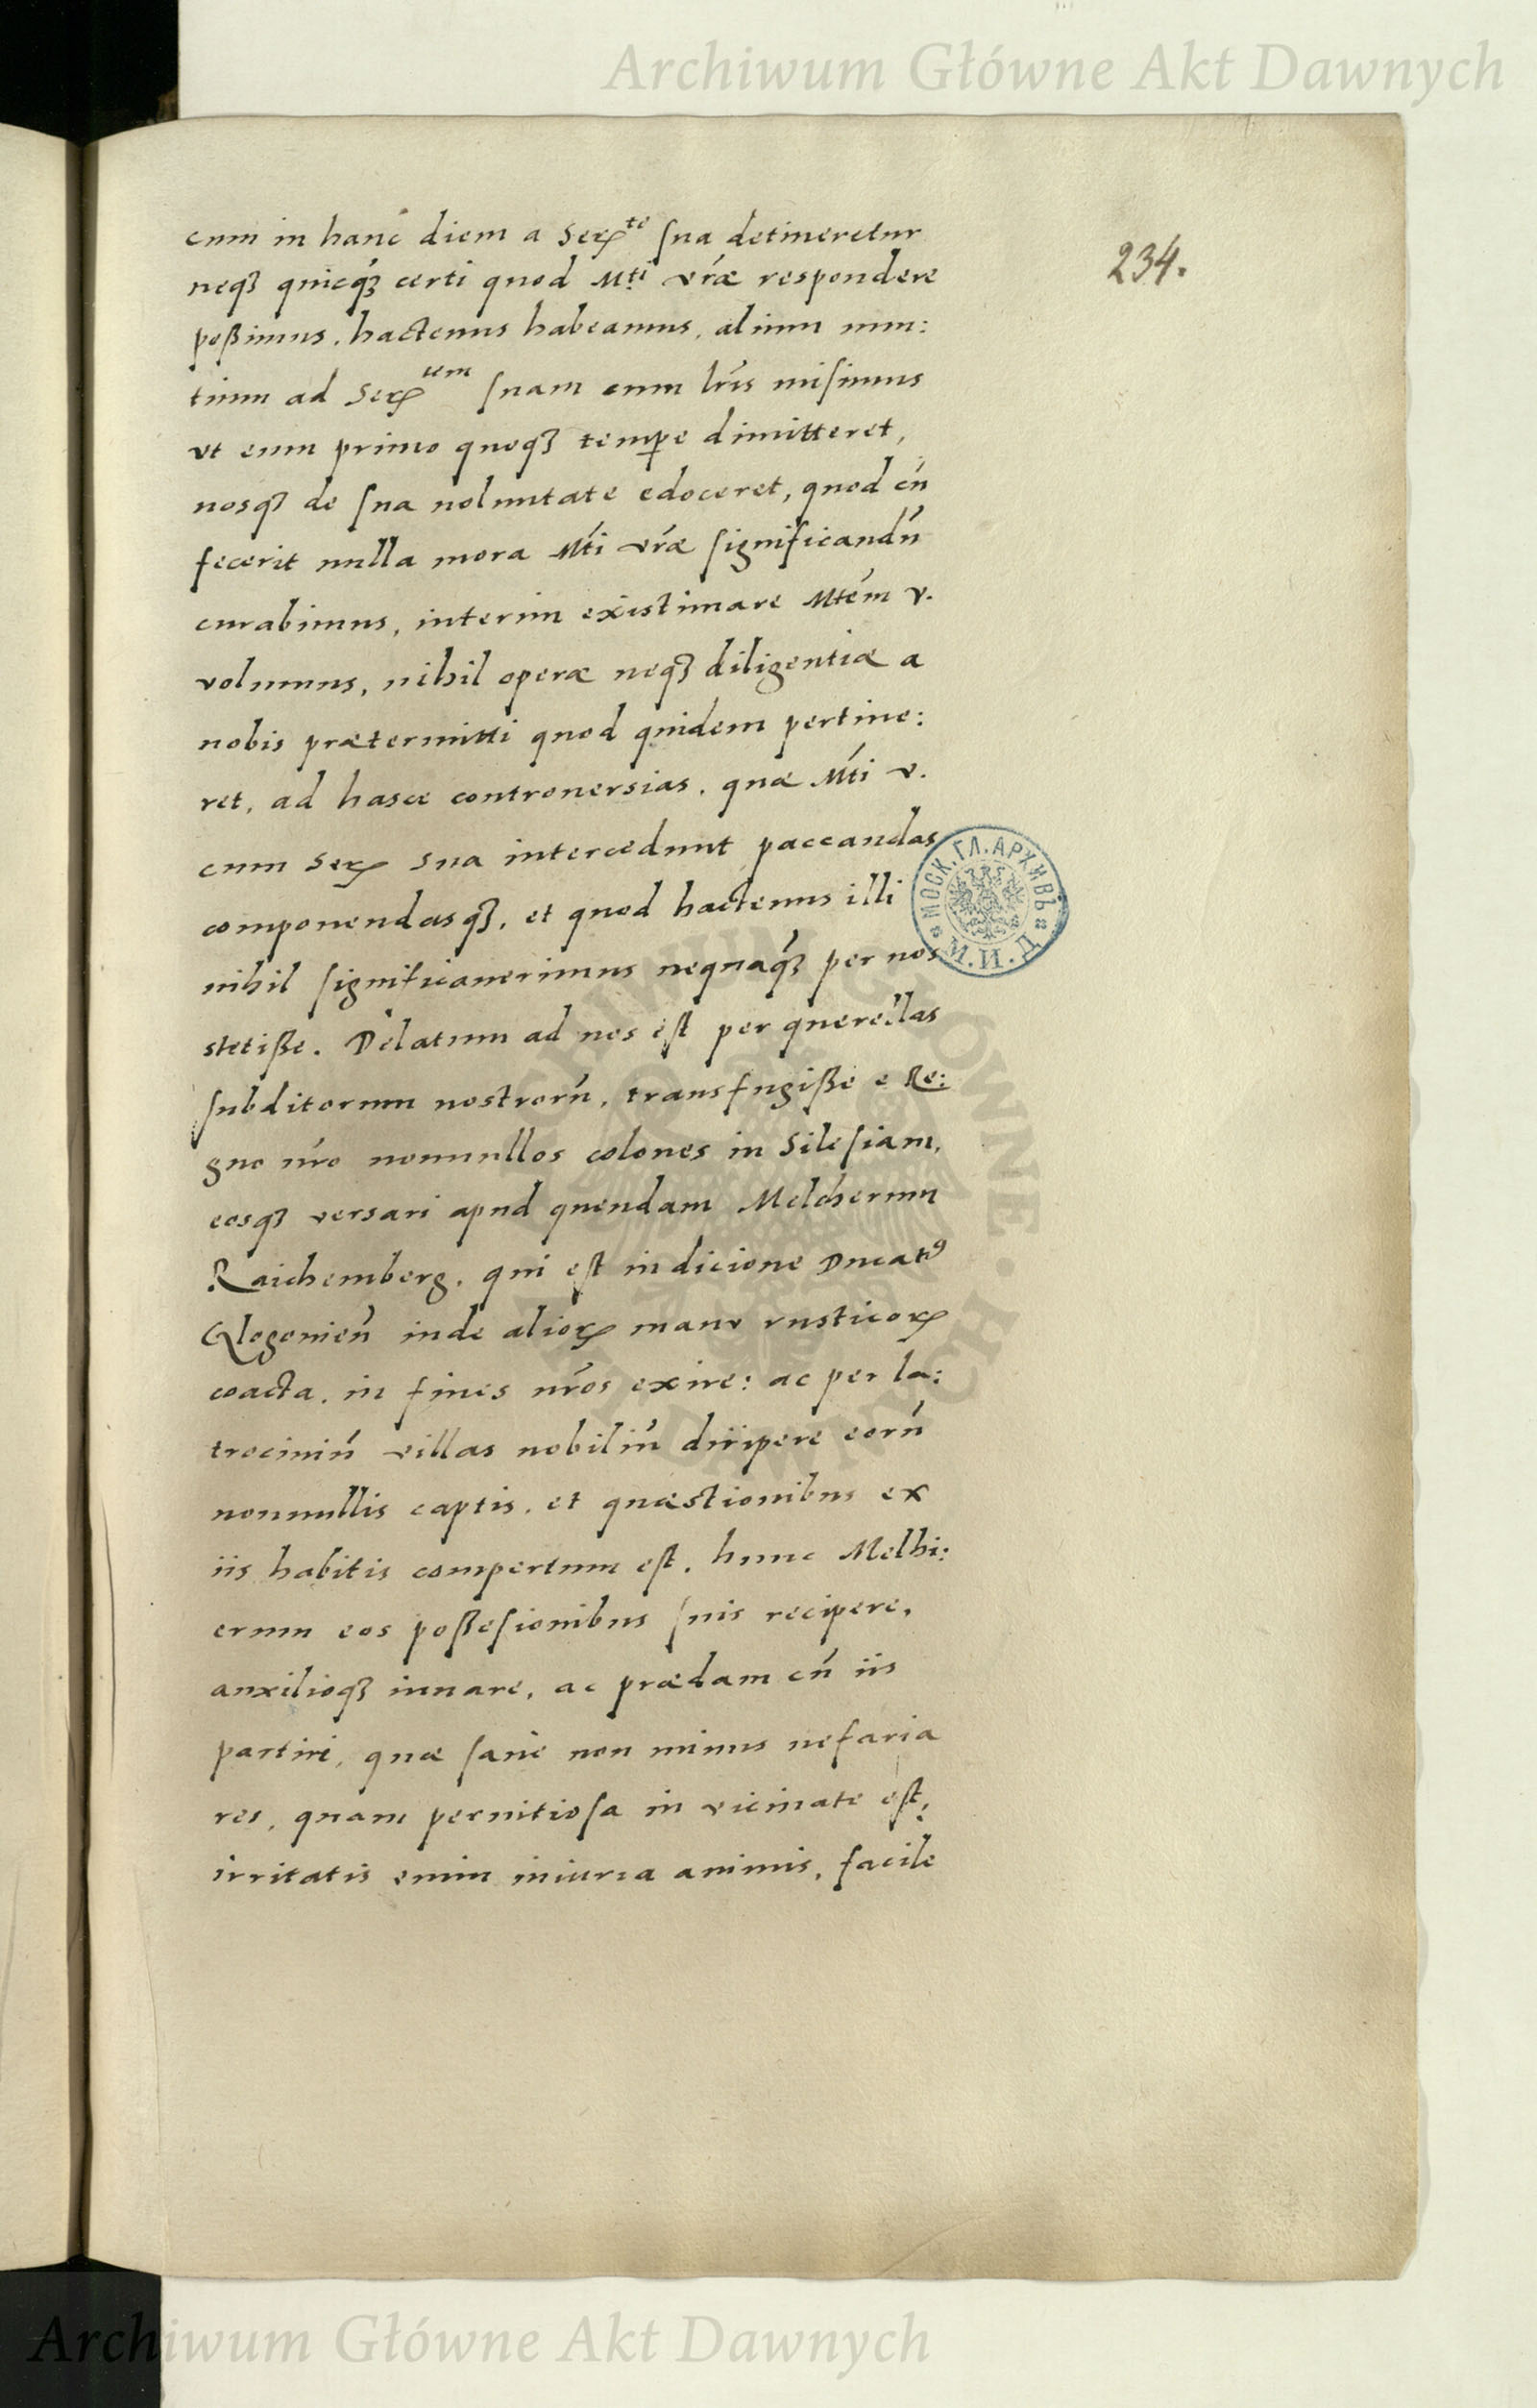 Archiwum Główne Akt Dawnych
234.
cum in hanc diem a Serꝫ^te sua detineretur
neqꝫ quicq́ꝫ certi quod M:^ti vŕæ respondere
poßimus, hactenus habeamus, alium nun:
tium ad Serꝫ^tem suam cum lŕis misimus
vt eum primo quoqꝫ tempꝑe dimitteret,
nosqꝫ de sua uoluntate edoceret, quod cú
fecerit nulla mora Mti vŕæ significandú
curabimus, interim existimare Mtém v.
volumus, nihil operæ neqꝫ diligentiæ a
nobis prætermitti quod quidem pertine:
ret, ad hasce controuersias, quæ Mti v.
cum Serꝫ sua intercedunt paccandas
componendasqꝫ, et quod hactenus illi
nihil significauerimus nequaq́ꝫ per nos
stetiße. Delatum ad nos est per querellas
subditorum nostrorú, transfugiße e Re:
gno nŕo nonnullos colonos in Silesiam,
eosqꝫ versari apud quendam Melcherum
Raichemberg, qui est in dicione Ducatꝰ
Glogonień inde alioꝝ manu rusticoꝝ
coacta, in fines nŕos exire: ac per la:
trociniú villas nobiliú diripere eorú
nonnullis captis, et quæstionibus ex
iis habitis compertum est, hunc Melhi:
erum eos poßesionibus suis recipere,
auxilioqꝫ iuuare, ac prædam cú iis
partiri, quæ sane non minus nefaria
res, quam pernitiosa in vicinate est,
irritatis enim iniuria animis, facile
МОСК. ГЛ. АРХИВЪ
М.И.Д.
Archiwum Główne Akt Dawnych